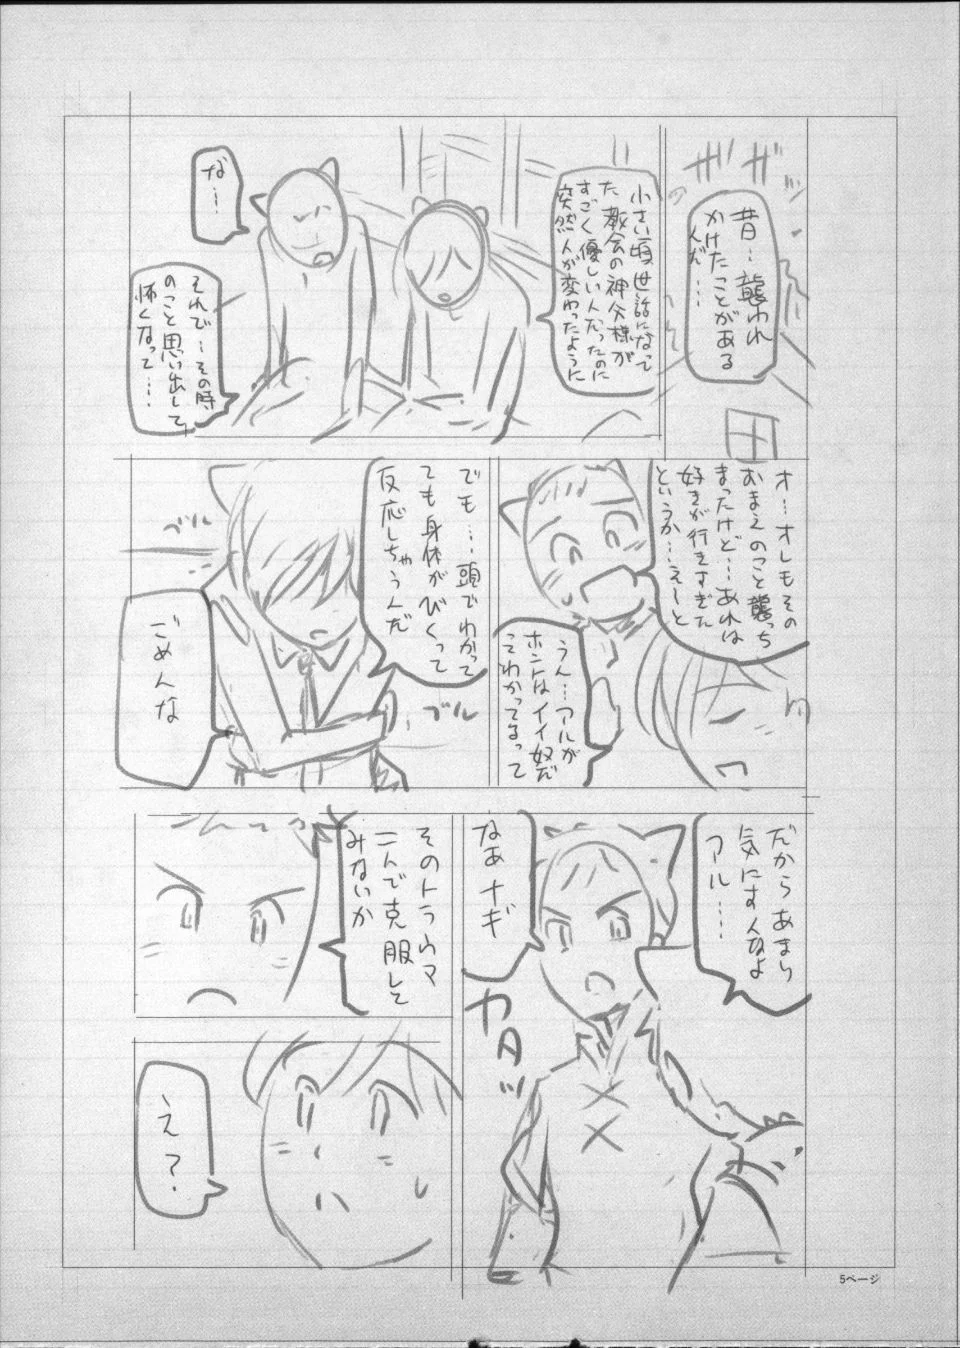 ザザ
昔…襲われ
かけたことがある
んだ…
小さい頃世話になって
た教会の神父様が
すごく優しい人だったのに
突然人が変わったように
な…
それで…その時
のこと思い出して
怖くなって…
オ…オレもその
おまえのこと襲っち
まったけど…あれは
好きが行きすぎた
というか…えーと
うん…アルが
ホントはイイ奴だ
ってわかってるって
でも…頭でわかって
ても身体がびくって
反応しちゃうんだ
ブル
ブル
ごめんな
だからあまり
気にすんなよ
アル…
なあナギ
ガタッ
そのトラウマ
二人で克服して
みないか
え?
5ページ